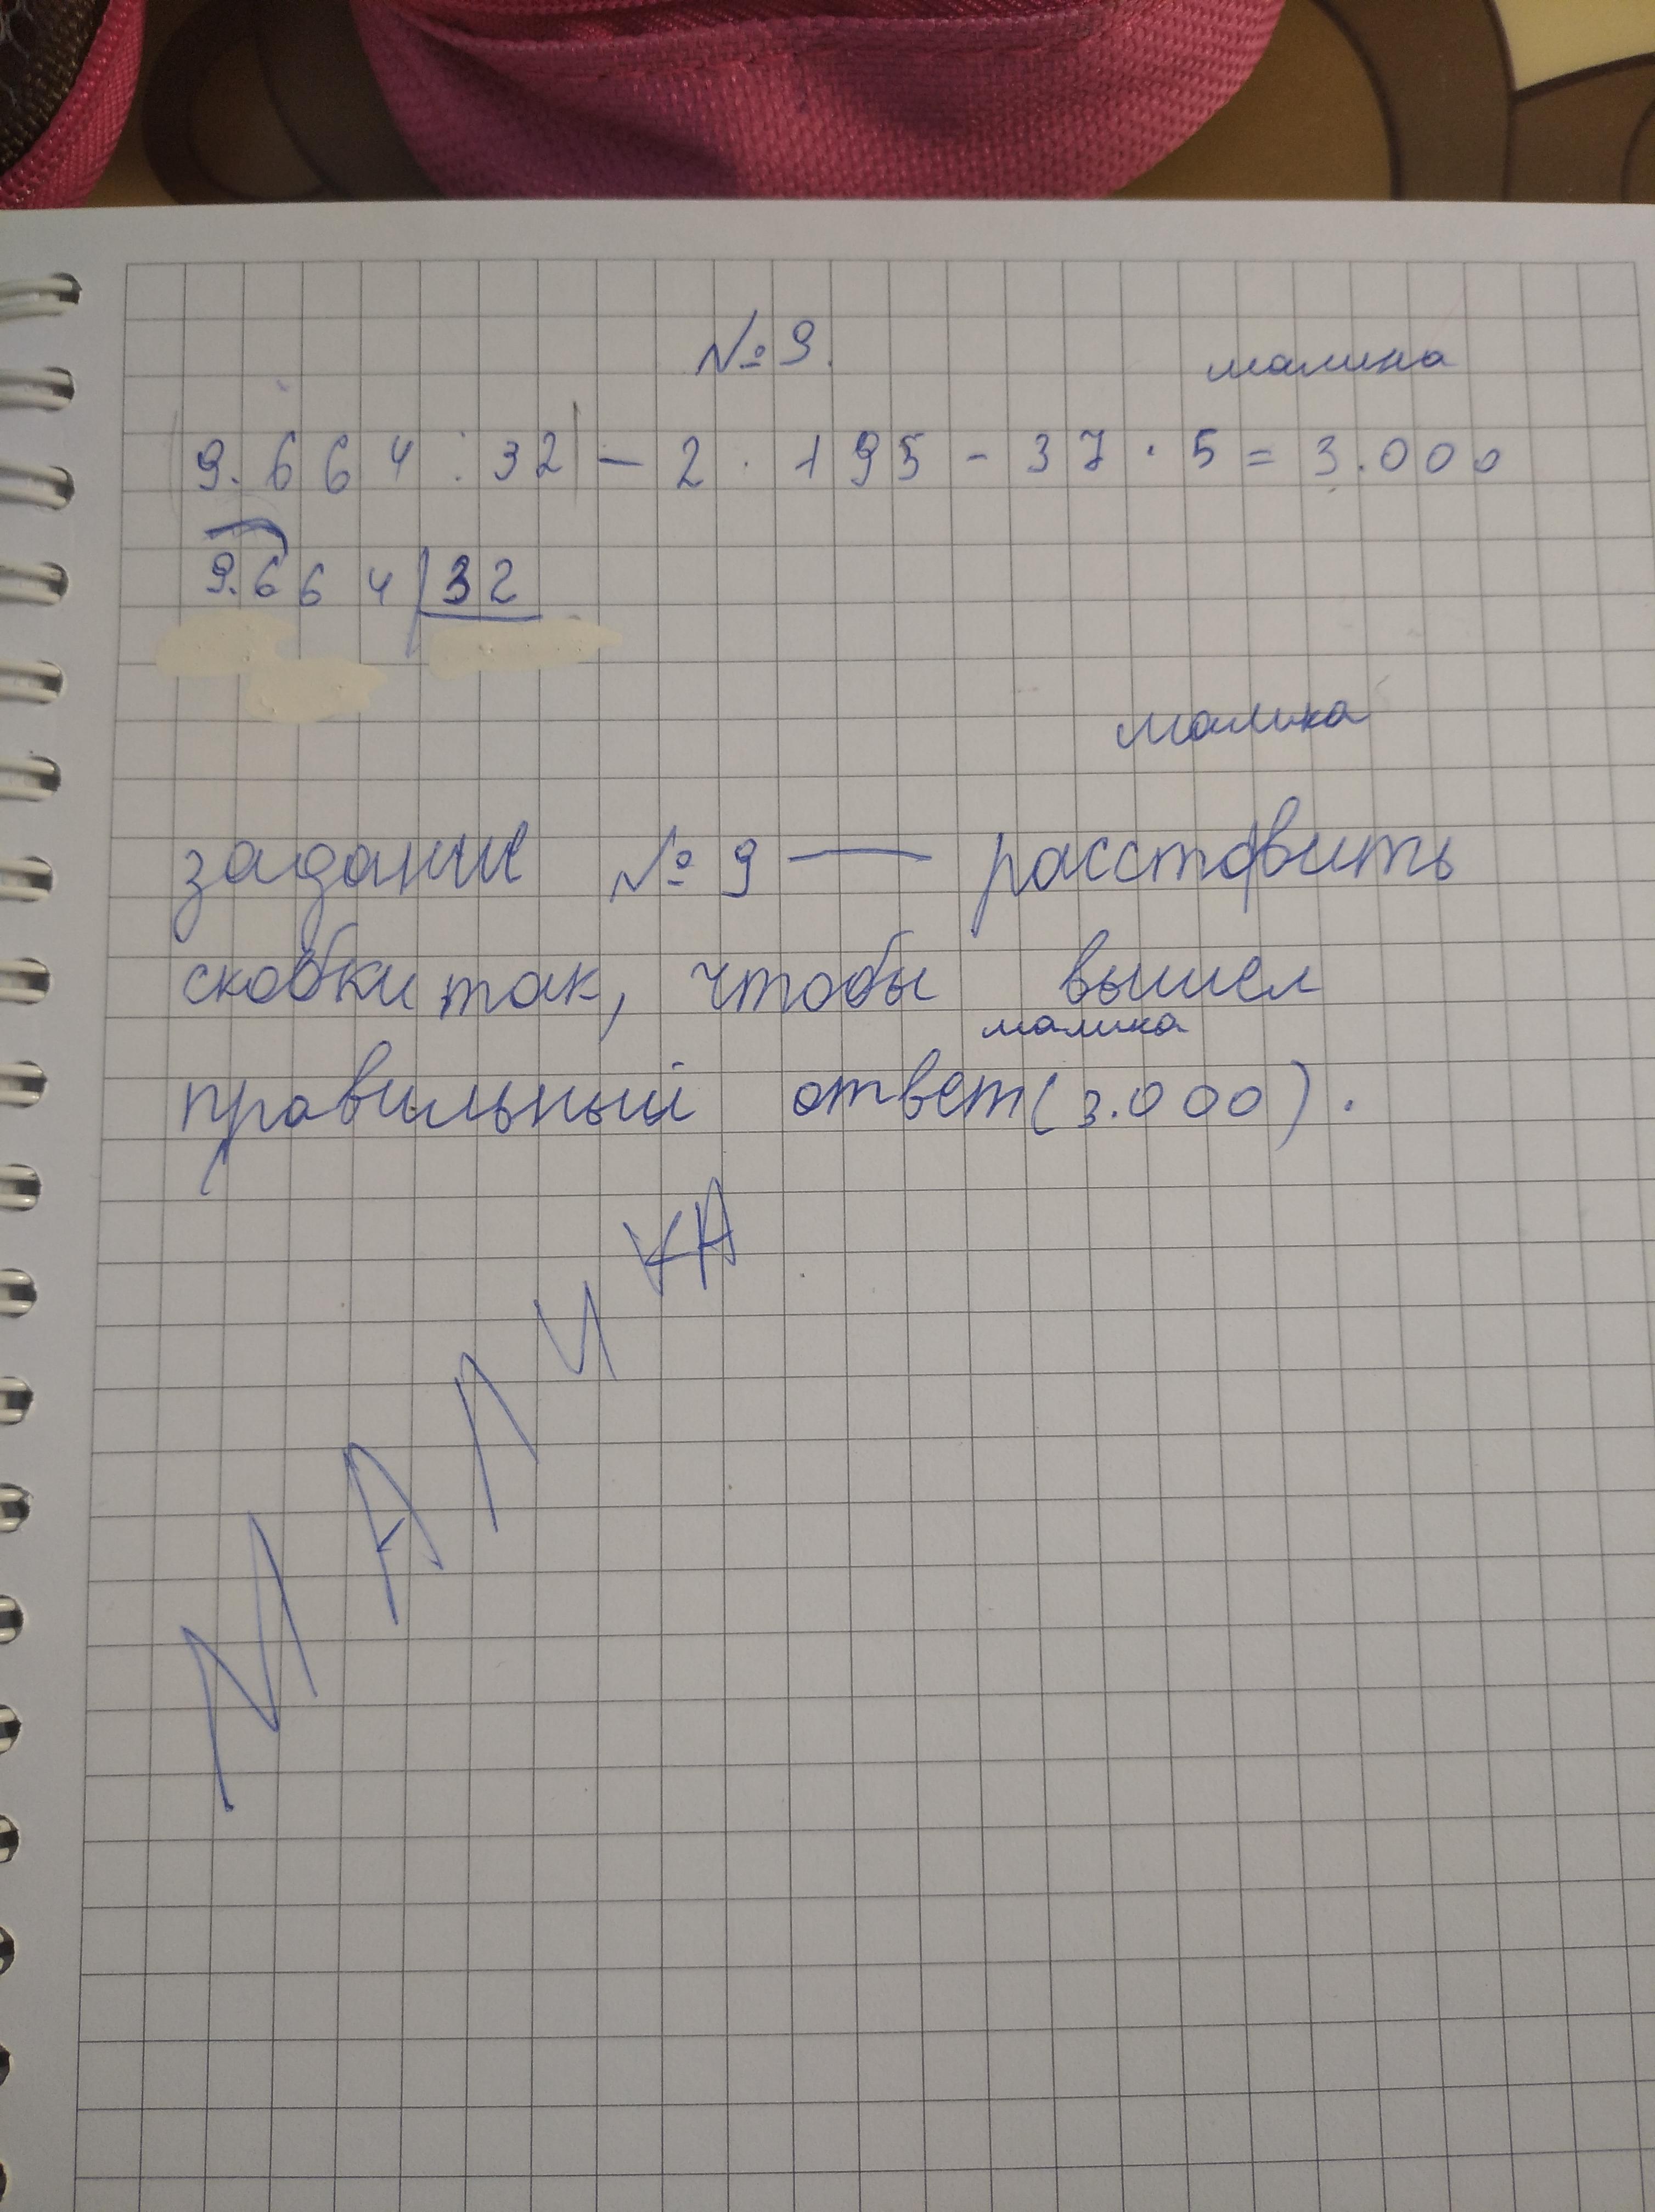 № 9.
малика
9.664 : 32 - 2 · 195 - 37 · 5 = 3.000
9.664 32
малика
задание № 9 — расставить
скобки так, чтобы вышел
малика
правильный ответ (3.000).
МАЛИКА